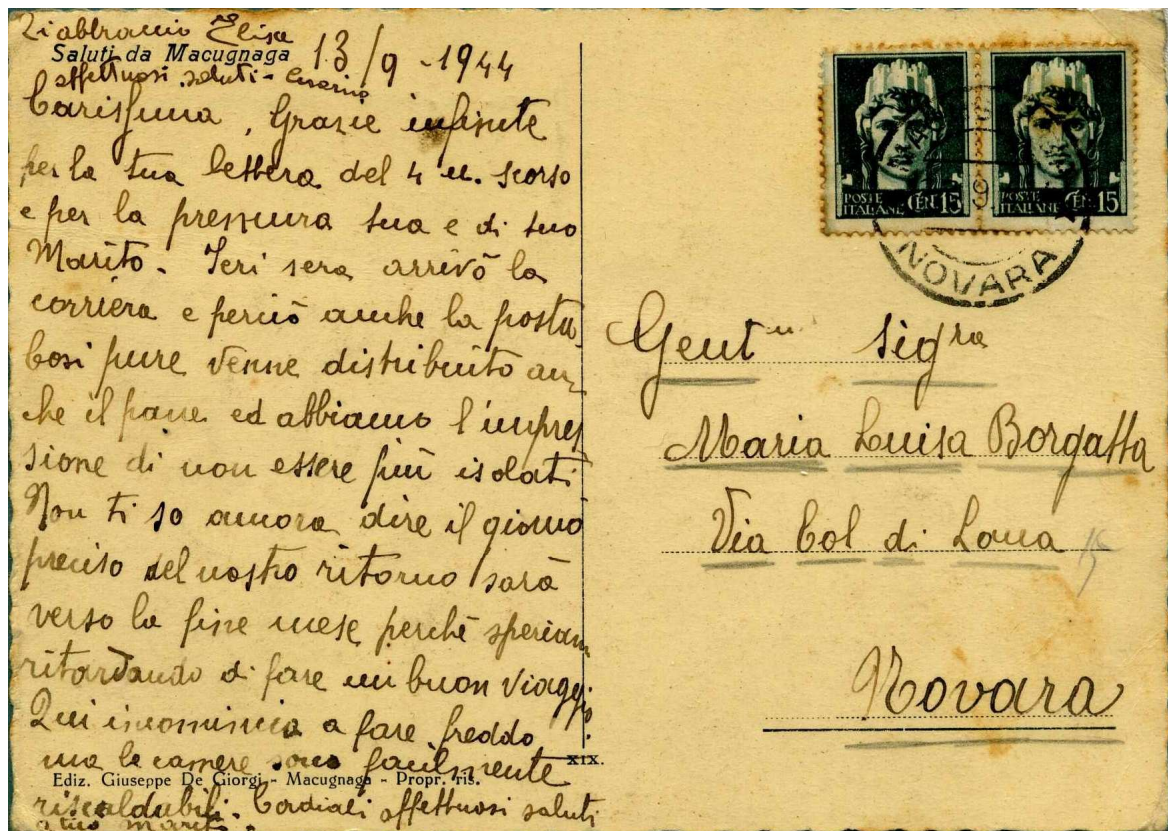 Ti abbraccio Elisa
Saluti da Macugnaga
13/9-1944
affettuosi saluti - Cesarina
Carissima, Grazie infinite
per la tua lettera del 4 u. scorso
e per la premura tua e di tuo
Marito. Ieri sera arrivò la
corriera e perciò anche la posta
Così pure venne distribuito an
che il pane ed abbiamo l'impres
sione di non essere più isolati
Non ti so ancora dire il giorno
preciso del nostro ritorno sarà
verso la fine mese perchè speriam
ritardando di fare un buon viaggio.
Qui incomincia a fare freddo
ma le camere sono facilmente
XIX.
Ediz. Giuseppe De Giorgi - Macugnaga - Propr. ris.
riscaldabili. Cordiali affettuosi saluti
a tuo marito.
POSTE ITALIANE CEN. 15
POSTE ITALIANE CEN. 15
NOVARA
Gent.ma Sig.ra
Maria Luisa Borgatta
Via Col di Lana 15
Novara